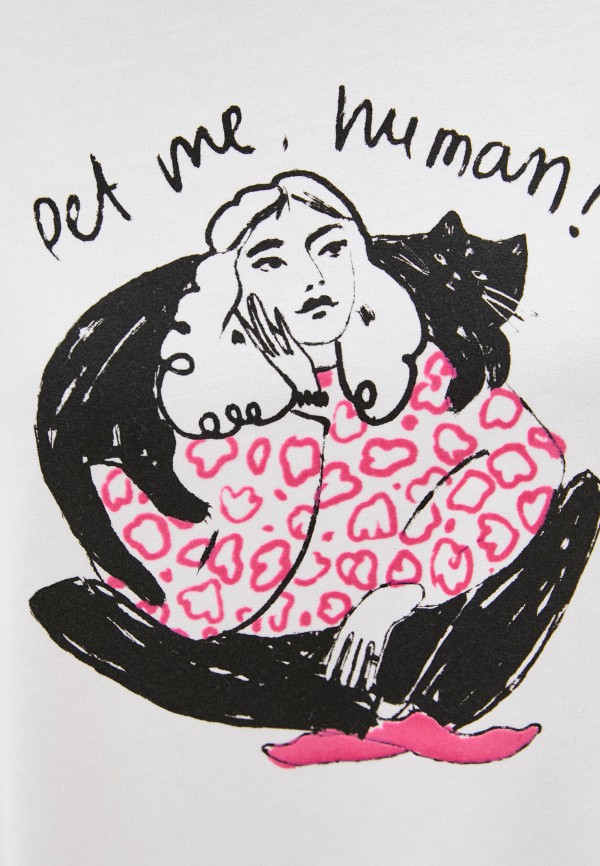 pet me, human!